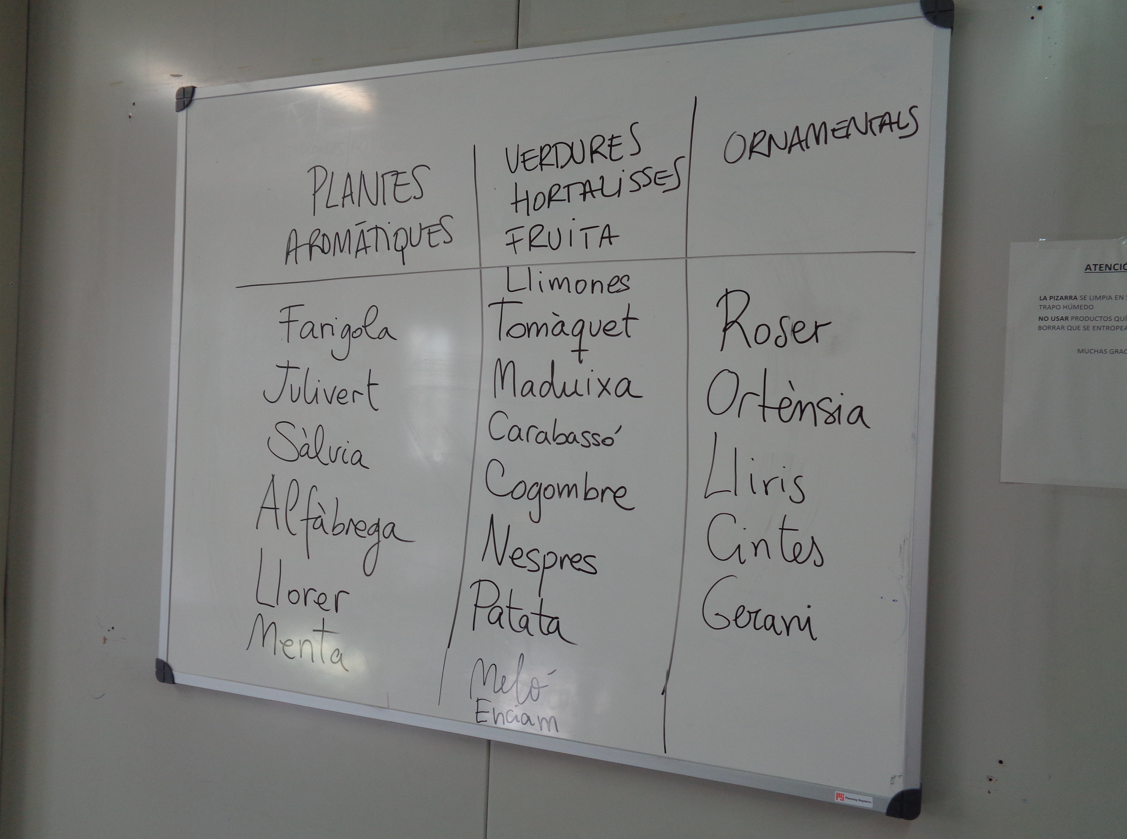 PLANTES
AROMÀTIQUES
Farigola
Julivert
Sàlvia
Alfàbrega
Llorer
Menta
VERDURES
HORTALISSES
FRUITA
Llimones
Tomàquet
Maduixa
Carabassó
Cogombre
Nespres
Patata
Meló
Enciam
ORNAMENTALS
Roser
Ortènsia
Lliris
Cintes
Gerani
ATENCIÓ
LA PIZARRA SE LIMPIA EN
TRAPO HÚMEDO
NO USAR PRODUCTOS QUE
BORRAR QUE SE ENTROPEA
MUCHAS GRAC